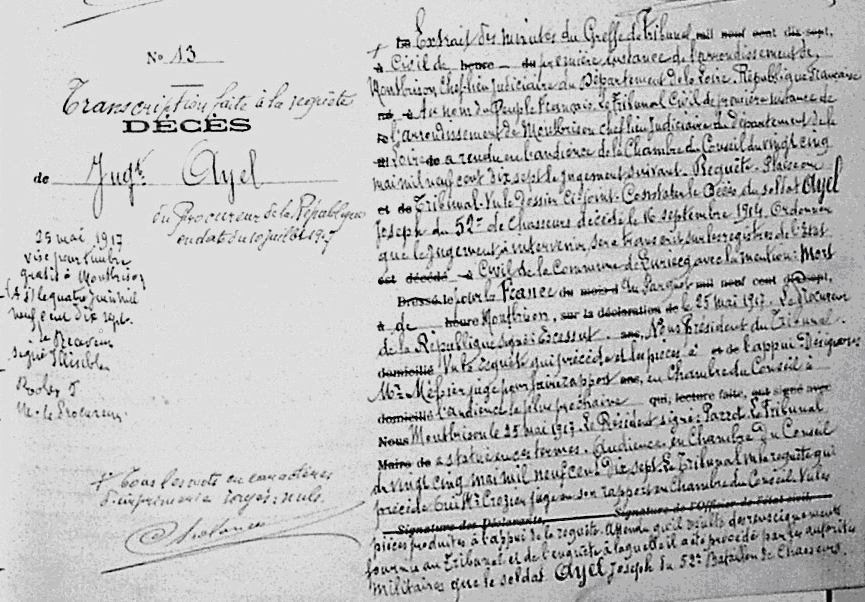 No 13
Transcription faite à la requête
DÉCÈS
de Jugt. Ayel
du Procureur de la République
en date du 10 juillet 1917
25 mai 1917
visé pour timbre
gratis à Montbrison
le quatre juin mil
neuf cent dix sept.
le Receveur
signé
M. le Procureur
+ Tous les mots en caractères
d'imprimerie rayés: nuls.
+ Le Extrait des minutes du Greffe de Tribunal mil neuf cent dix-sept,
à Civil de heure du première instance de l'arrondissement de
Montbrison Chef lieu Judiciaire du Département de la Loire. République Française
Au nom du Peuple Français. Le Tribunal Civil de première instance de
l'arrondissement de Montbrison chef lieu Judiciaire du département de la
Loire a rendu en l'audience de la Chambre du Conseil du vingt cinq
mai mil neuf cent dix sept le jugement suivant. Requête. Plaise au
et de Tribunal. Vu le dossier ci-joint. Constater le Décès du soldat Ayel
Joseph du 52e de Chasseurs décédé le 16 septembre 1914. Ordonner
que le Jugement à intervenir, sera transcrit sur les registres de l'Etat
est décédé à Civil de la Commune de Luriecq avec la mention: Mort
Dressé le pour la France du mois d Au Parquet mil neuf cent dix-sept,
à de heure Montbrison, sur la déclaration de le 25 mai 1917. Le Procureur
de la République signé: Escessent. ans, Nous Président du Tribunal.
domicilié Vu la requête qui précède et les pièces à et de l'appui Désignons
Mr. Messier juge pour faire rapport ans, en Chambre du Conseil à
domicilié l'audience la plus prochaine qui, lecture faite, ont signé avec
Nous Montbrison le 25 mai 1917. Le Président signé: Le Tribunal
Maire de a statué en ces termes. Audience en Chambre du Conseil
du vingt cinq mai mil neuf cent dix sept. Le Tribunal Vu la requête qui
précède Ouï Mr. Crozier juge en son rapport en Chambre du Conseil. Vu les
Signature des Déclarants, Signature de l'Officier de l'état civil,
pièces produites à l'appui de la requête. Attendu qu'il résulte des renseignements
fournis au Tribunal et de l'enquête à laquelle il a été procédé par les autorités
militaires que le soldat Ayel Joseph du 52e Bataillon de Chasseurs.